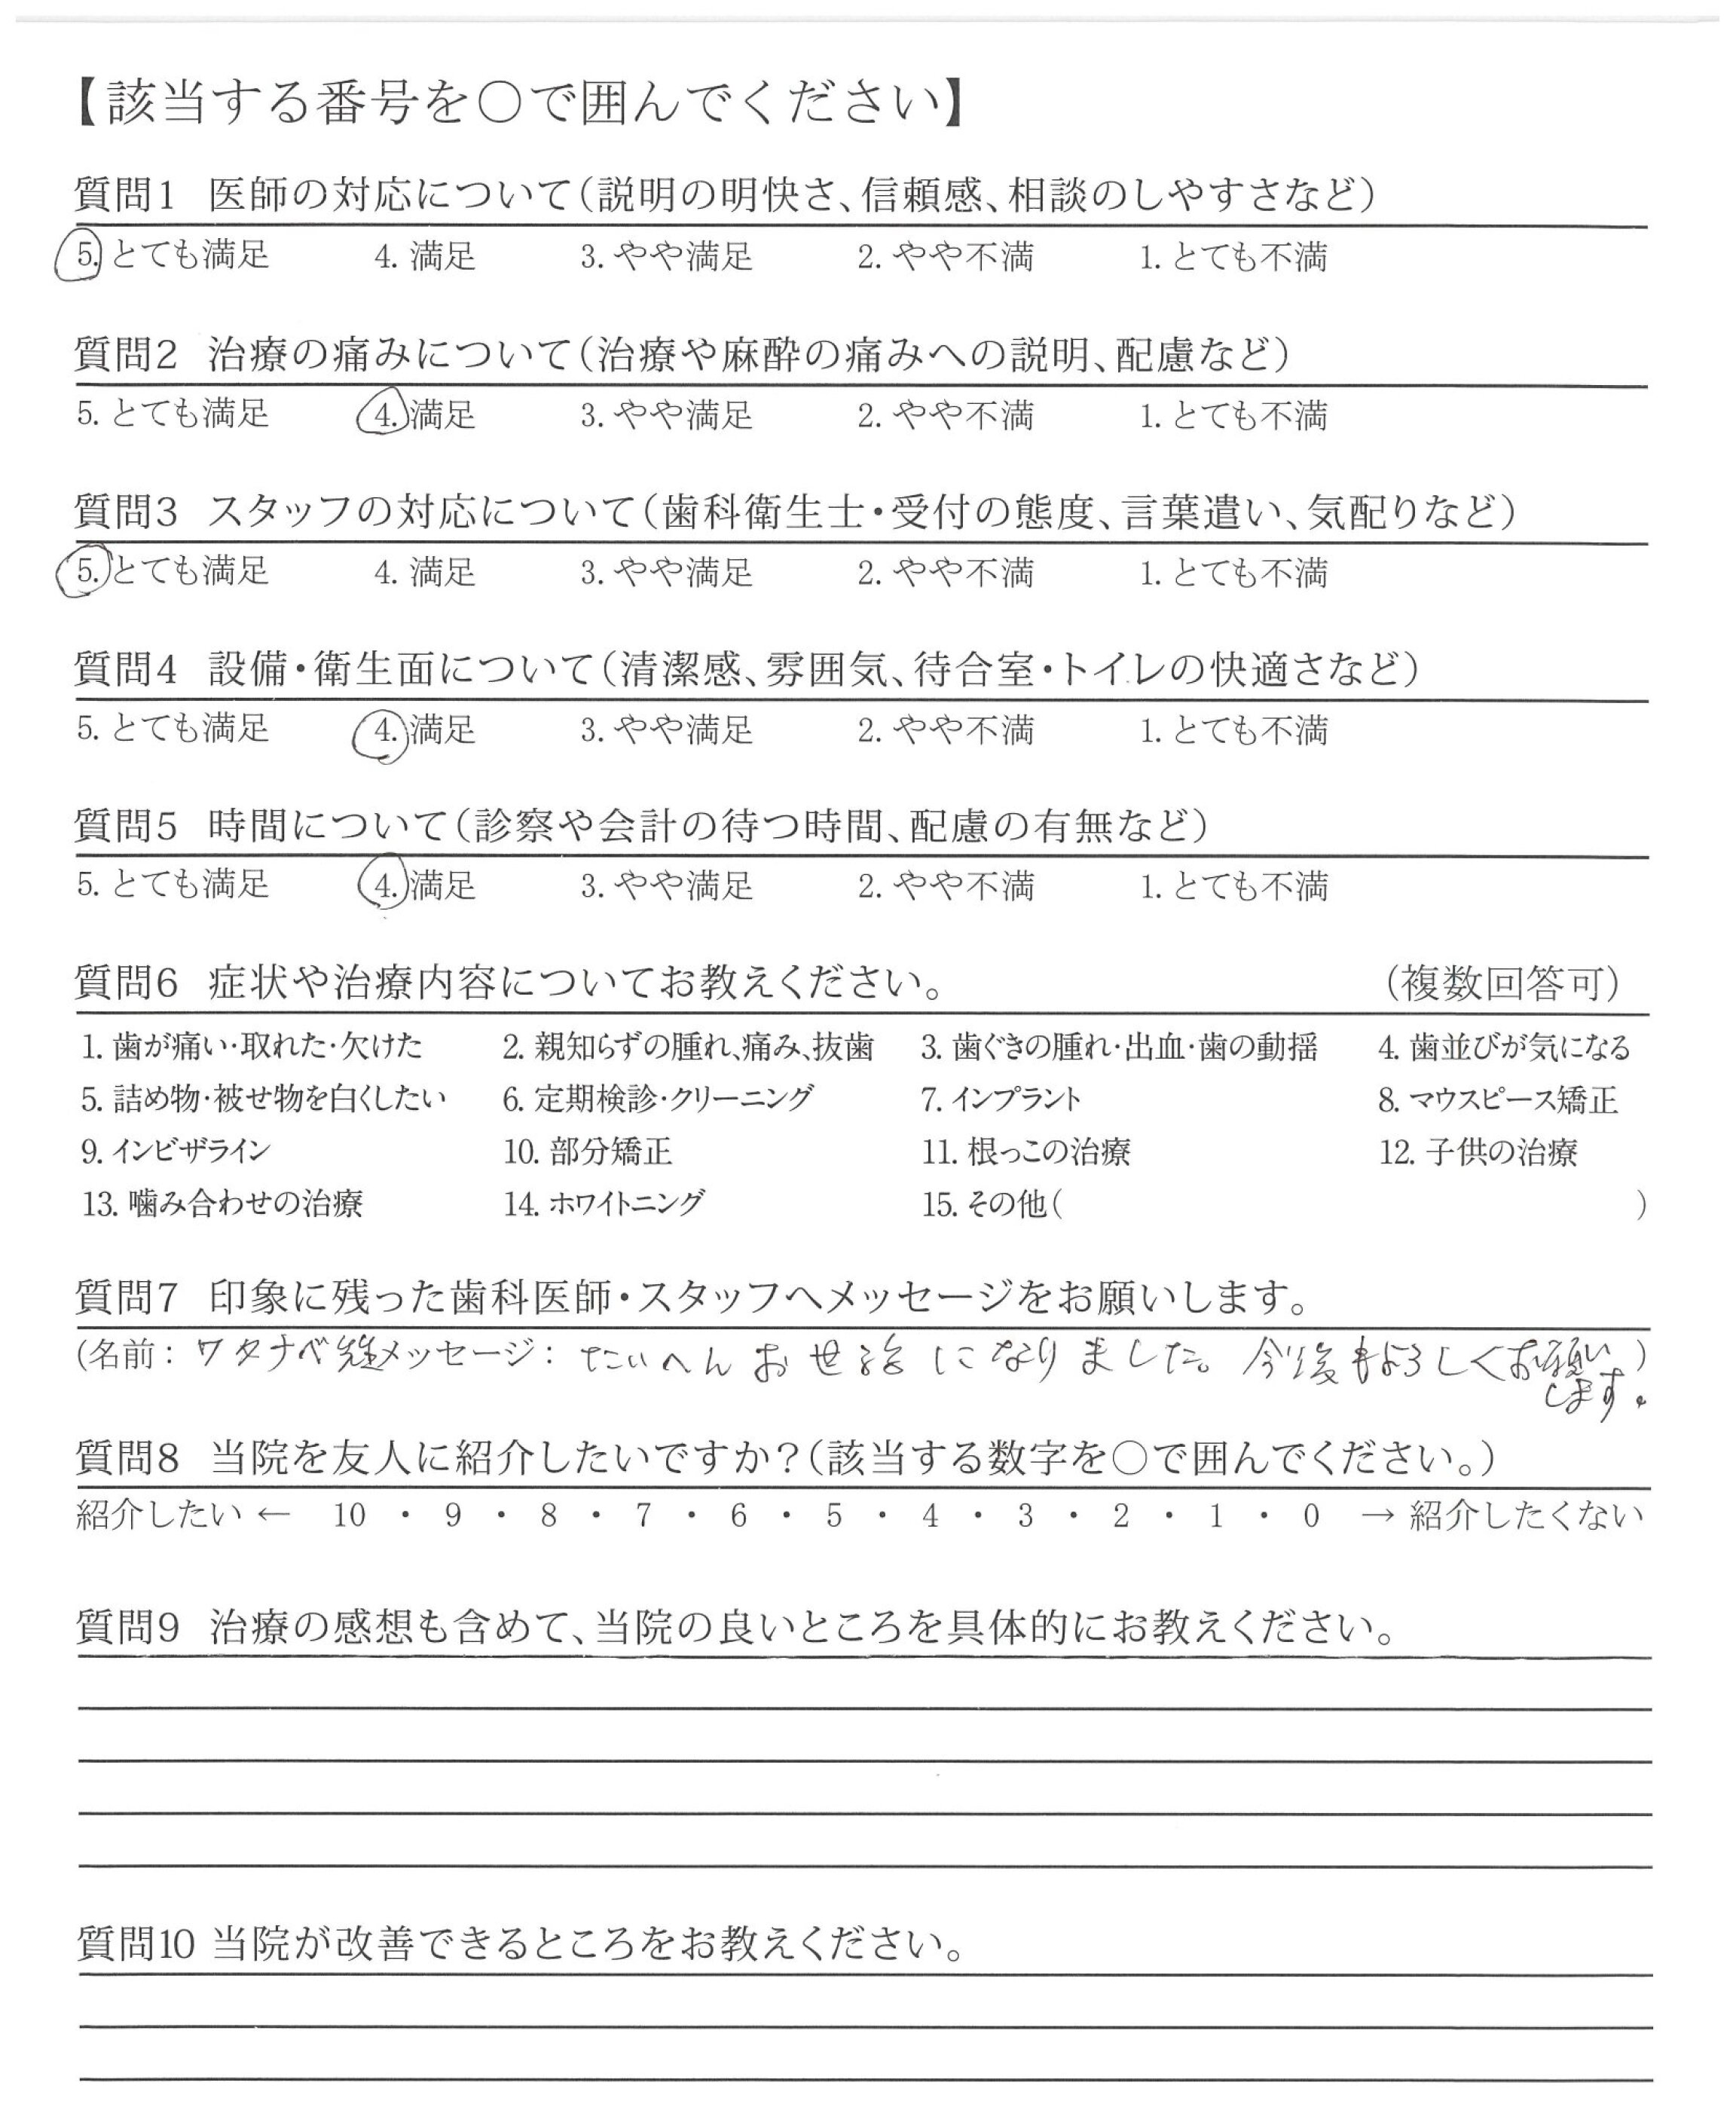 【該当する番号を〇で囲んでください】
質問1 医師の対応について(説明の明快さ、信頼感、相談のしやすさなど)
5. とても満足 4. 満足 3. やや満足 2. やや不満 1. とても不満
質問2 治療の痛みについて(治療や麻酔の痛みへの説明、配慮など)
5. とても満足 4. 満足 3. やや満足 2. やや不満 1. とても不満
質問3 スタッフの対応について(歯科衛生士・受付の態度、言葉遣い、気配りなど)
5. とても満足 4. 満足 3. やや満足 2. やや不満 1. とても不満
質問4 設備・衛生面について(清潔感、雰囲気、待合室・トイレの快適さなど)
5. とても満足 4. 満足 3. やや満足 2. やや不満 1. とても不満
質問5 時間について(診察や会計の待つ時間、配慮の有無など)
5. とても満足 4. 満足 3. やや満足 2. やや不満 1. とても不満
質問6 症状や治療内容についてお教えください。 (複数回答可)
1. 歯が痛い・取れた・欠けた 2. 親知らずの腫れ、痛み、抜歯 3. 歯ぐきの腫れ・出血・歯の動揺 4. 歯並びが気になる
5. 詰め物・被せ物を白くしたい 6. 定期検診・クリーニング 7. インプラント 8. マウスピース矯正
9. インビザライン 10. 部分矯正 11. 根っこの治療 12. 子供の治療
13. 噛み合わせの治療 14. ホワイトニング 15. その他( )
質問7 印象に残った歯科医師・スタッフへメッセージをお願いします。
(名前: ワタナベ先生 メッセージ: たいへんお世話になりました。今後もよろしくお願い)
します。
質問8 当院を友人に紹介したいですか?(該当する数字を〇で囲んでください。)
紹介したい ← 10 ・ 9 ・ 8 ・ 7 ・ 6 ・ 5 ・ 4 ・ 3 ・ 2 ・ 1 ・ 0 → 紹介したくない
質問9 治療の感想も含めて、当院の良いところを具体的にお教えください。
質問10 当院が改善できるところをお教えください。